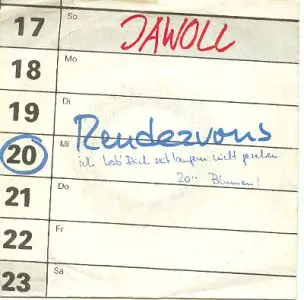 17 So JAWOLL
18 Mo
19 Di
Rendezvous
20 Mi ich hab' Dich seit langem nicht gesehen
20°° Blumen!
21 Do
22 Fr
23 Sa